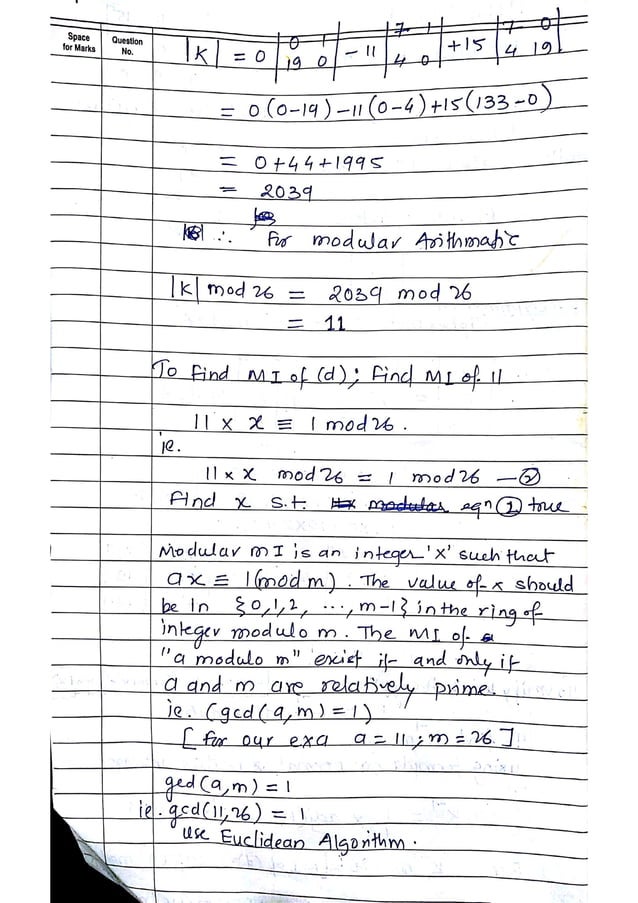 Space for Marks
Question No.
|K| = 0 | 0 1 | - 11 | 7 1 | + 15 | 7 0 |
| 19 0 | | 4 0 | | 4 19 |
= 0(0-19) - 11(0-4) + 15(133-0)
= 0 + 44 + 1995
= 2039
∴ For modular Arithmatic
|K| mod 26 = 2039 mod 26
= 11
To find MI of (d); find MI of 11
11 × x ≡ 1 mod 26.
ie.
11 × x mod 26 = 1 mod 26 —②
Find x s.t. modular eqn ① true
Modular MI is an integer 'x' such that
ax ≡ 1(mod m). The value of x should
be in {0,1,2, ..., m-1} in the ring of
integer modulo m. The MI of
"a modulo m" exist if and only if
a and m are relatively prime.
ie. (gcd(a,m)=1)
[for our exa a=11; m=26.]
gcd(a,m) = 1
ie. gcd(11,26) = 1
use Euclidean Algorithm.